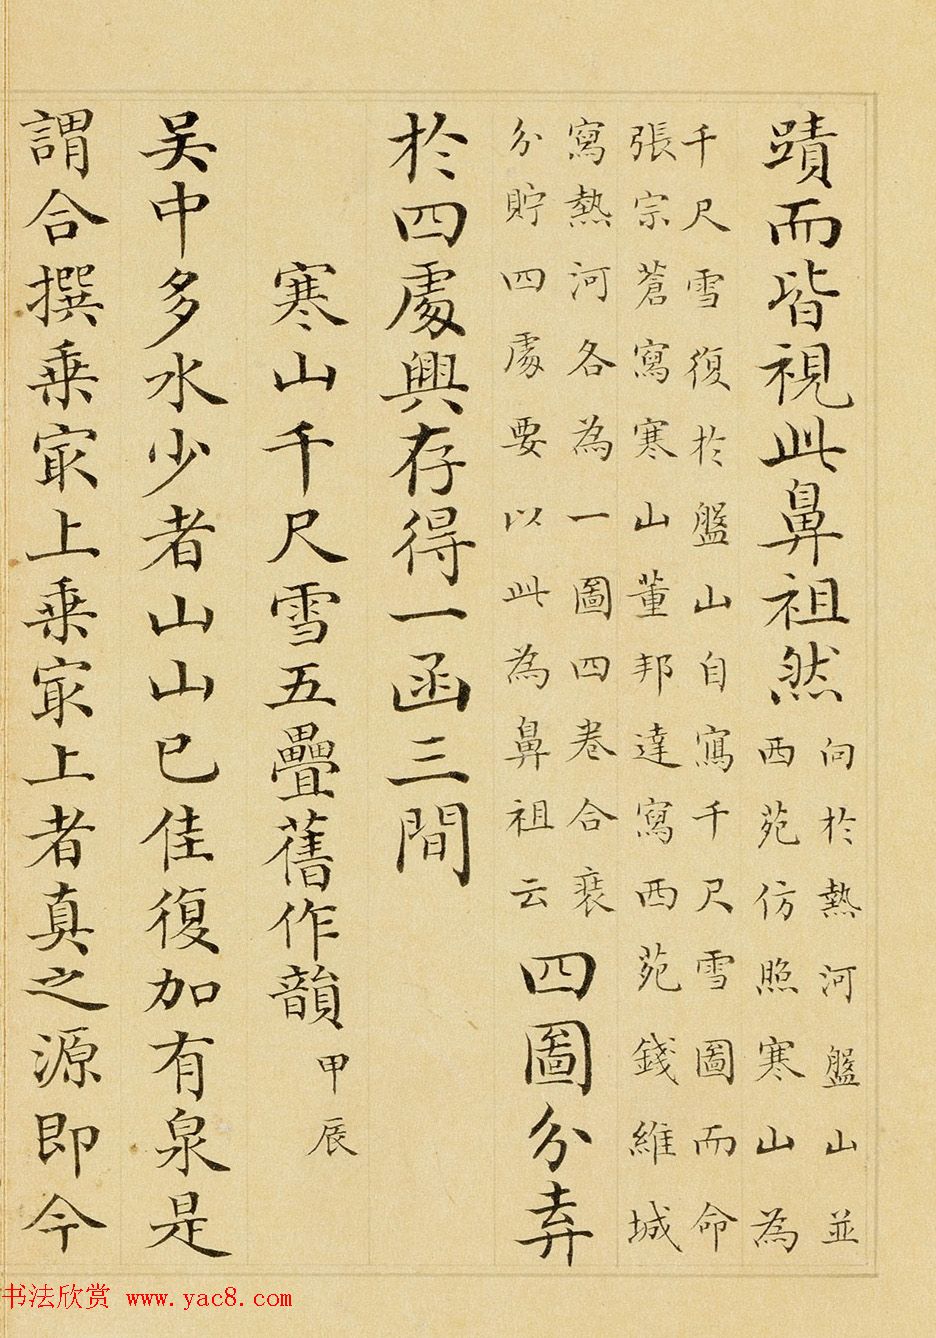 蹟而皆視此鼻祖然
向於熱河盤山並
西苑仿照寒山為
千尺雪復於盤山自寫千尺雪圖而命
張宗蒼寫寒山董邦達寫西苑錢維城
寫熱河各為一圖四卷合袠
分貯四處要以此為鼻祖云
四圖分弆
於四處興存得一函三間
寒山千尺雪五疊舊作韻甲辰
吴中多水少者山山已佳復加有泉是
謂合撰乗冣上乗冣上者真之源即今
书法欣赏 www.yac8.com